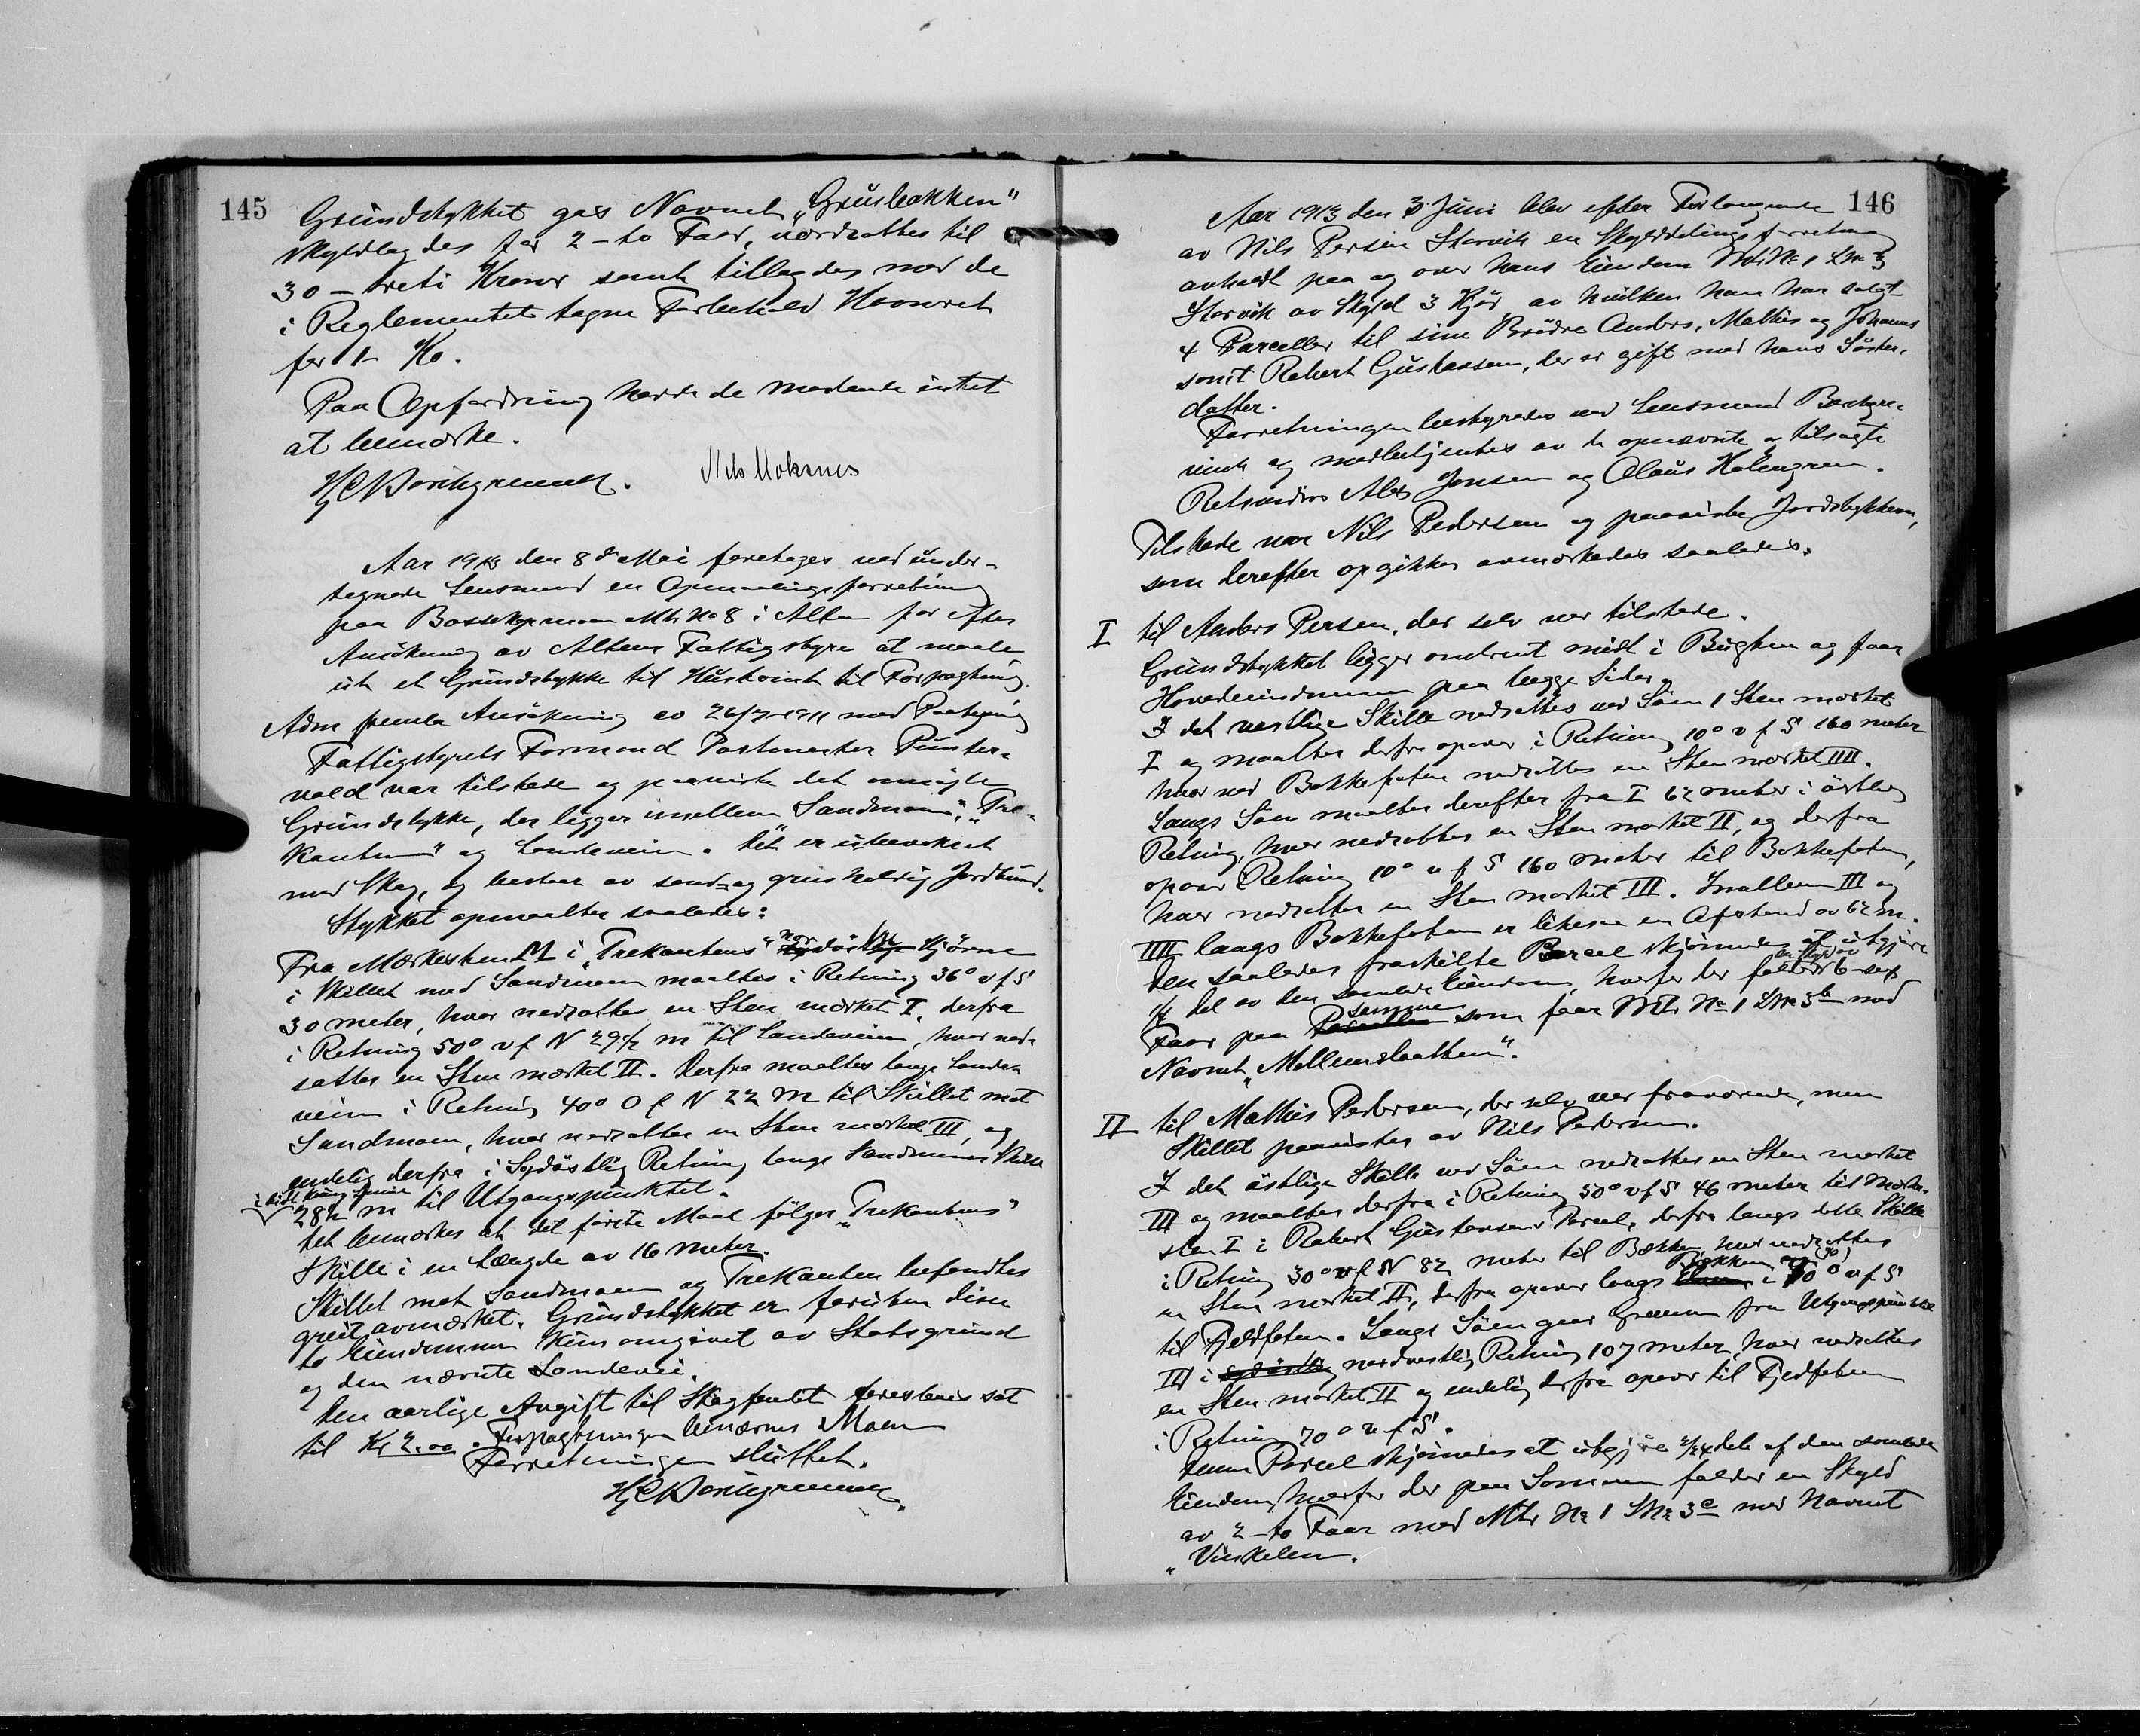 145
Grundstykket gas Navnet „Grusbakken"
skyldlagdes for 2 - to Faar, værdsattes til
30 - treti Kroner samt tillagdes med de
i Reglementet tagne Forbehold Havneret
for 1 - Ko.
Paa Opfordring havde de mødende intet
at bemærke.
Nils Mohanes
Aar 1913 den 8de Mai foretages ved under-
tegnede Lensmand en Opmaalingsforretning
paa Bossekopmoen Mtr No 8 i Alten for efter
Ansökning av Altens Fattigstyre at maale
ut et Grundstykke til Hustomt til Forpagtning.
Adm fremla Ansökning av 26/7-1911 med Paategning
Fattigstyrets Formand Postmester Punter-
vold var tilstede og paaviste det
Grundstykke, der ligger imellem Sandmoen, „Tre-
kanten" og Landeveien. Det er ubevokset
med Skog, og bestaar av sand- og grusholdig Jordbund.
Stykket opmaaltes saaledes:
Fra Merkesten M i „Trekantens" nordöstlige Hjörne
i Skillet med Sandmoen maaltes i Retning 36° v f S
30 meter, hvor nedsattes en Sten mærket I, derfra
i Retning 50° v f N 29½ m til Landeveien, hvor ned-
sattes en Sten mærket II. Derfra maaltes langs Lande-
veien i Retning 40° O f N 22 m til Skillet mot
Sandmoen, hvor nedsattes en Sten merket III, og
endelig derfra i Sydöstlig Retning langs Sandmoens Skille
28½ m til Utgangspunktet.
Det bemærkes at det förste Maal fölger „Trekantens"
Skille i en Længde av 16 meter.
Skillet mot Sandmoen og Trekanten befandtes
greit avmærket. Grundstykket er foruten disse
to Eiendomme kun omgivet av Statsgrund
og den nævnte Landevei.
Den aarlige Avgift til Skogfondet foreslaaes sat
til Kr 2.00. Forpagtningen benævnes Moen
Forretningen sluttet.
146
Aar 1913 den 3 Juni blev efter Forlangende
av Nils Persen Storvik en Skylddelingsforretning
avholdt paa og over hans Eiendom Mtr No 1 LNo 3
Storvik av Skyld 3 Kjör av hvilken han har solgt
4 Parceller til sine Brödre Anders, Mathis og Johannes
samt Robert Gustavsen, der er gift med hans Söster-
datter.
Forretningen bestyredes ved Lensmand Bortgre-
vink og medbetjentes av de opnævnte og tilsagte
Retsvidner Alet Jensen og Olaus Holmgren.
Tilstede var Nils Pedersen og paaviste Jordstykkerne,
som derefter opgikkes avmerkedes saaledes.
I til Anders Persen, der selv var tilstede.
Grundstykket ligger omtrent midt i Bugten og faar
Hovedeiendommen paa begge Sider.
I det vestlige Skille nedsattes ved Söen 1 Sten mærket
I og maaltes derfra opover i Retning 10° v f S 160 meter
hvor ved Bakkefoten nedsattes en Sten mærket IIII.
Langs Söen maaltes derefter fra I 62 meter i östlig
Retning, hvor nedsattes en Sten mærket II, og derfra
opover Retning 10° v f S 160 meter til Bakkefoten,
hvor nedsattes en Sten mærket III. Imellem III og
IIII langs Bakkefoten er likesaa en Afstand av 62 m.
Den saaledes fraskilte Parcel skjønnedes at utgjøre
¼ del av den samlede Eiendom, hvorfor der falder en Skyld av 6 - seks
Faar paa Parcellen samme som faar Mtr No 1 LNo 3b med
Navnet „Mellemslaatten".
II til Mathis Pedersen, der selv var fraværende, men
Skillet paavistes av Nils Pedersen.
I det östlige Skille ved Söen nedsattes en Sten merket
III og maaltes derfra i Retning 50° v f S 46 meter til Merke-
sten I i Robert Gustavsens Parcel, derfra langs dette Skille
i Retning 30° v f N 82 meter til Bækken, hvor nedsattes
en Sten merket II, derfra opover langs Elven Bækken i 70° (70) v f S
til Fjeldfoten. Langs Söen gaar Grænsen fra Utgangspunktet
III i sydöstlig nordvestlig Retning 107 meter, hvor nedsattes
en Sten mærket II og endelig derfra opover til Fjeldfoten
i Retning 70° v f S.
Denne Parcel skjönnedes at utgjöre 2/24 dele af den samlede
Eiendom, hvorfor der paa Sammen falder en Skyld
av 2 - to Faar med Mtr No 1 LNo 3c med Navnet
„Vinkelen.